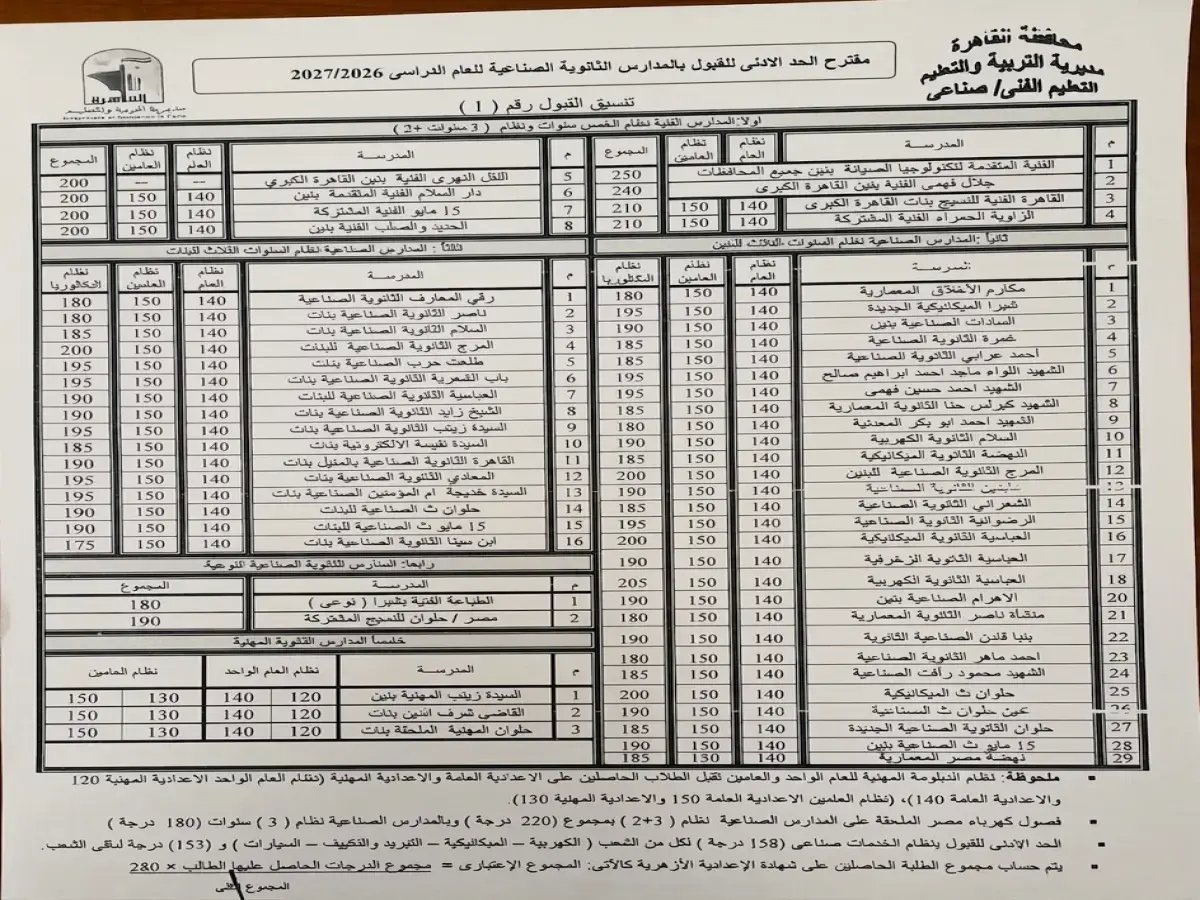 محافظة القاهرة
مديرية التربية والتعليم
التعليم الفنى/ صناعى
مقترح الحد الادنى للقبول بالمدارس الثانوية الصناعية للعام الدراسى 2027/2026
تنسيق القبول رقم ( 1 )
اولا:المدارس الفنية نظام الخمس سنوات ونظام ( 3 سنوات +2 )
م المدرسة نظام العام نظام العامين المجموع
1 الفنية المتقدمة لتكنولوجيا الصيانة بنين جميع المحافظات 250
2 جلال فهمى الفنية بنين القاهرة الكبرى 240
3 القاهرة الفنية للنسيج بنات القاهرة الكبرى 140 150 210
4 الزاوية الحمراء الفنية المشتركة 140 150 210
م المدرسة نظام العام نظام العامين المجموع
5 النقل النهرى الفنية بنين القاهرة الكبري -- -- 200
6 دار السلام الفنية المتقدمة بنين 140 150 200
7 15 مايو الفنية المشتركة 140 150 200
8 الحديد والصلب الفنية بنين 140 150 200
ثانياً :المدارس الصناعية نظام السنوات الثلاث للبنين
م المدرسة نظام العام نظام العامين نظام البكالوريا
1 مكارم الأخلاق المعمارية 140 150 180
2 شبرا الميكانيكية الجديدة 140 150 195
3 السادات الصناعية بنين 140 150 190
4 غمرة الثانوية الصناعية 140 150 185
5 احمد عرابي الثانوية الصناعية 140 150 185
6 الشهيد اللواء ماجد احمد ابراهيم صالح 140 150 195
7 الشهيد احمد حسين فهمى 140 150 195
8 الشهيد كيرلس حنا الثانوية المعمارية 140 150 185
9 الشهيد احمد ابو بكر المعدنية 140 150 180
10 السلام الثانوية الكهربية 140 150 190
11 النهضة الثانوية الميكانيكية 140 150 185
12 المرج الثانوية الصناعية للبنين 140 150 200
13 الثانوية الصناعية 140 150 190
14 الشعراني الثانوية الصناعية 140 150 185
15 الرضوانية الثانوية الصناعية 140 150 195
16 العباسية الثانوية الميكانيكية 140 150 200
17 العباسية الثانوية الزخرفية 140 150 190
18 العباسية الثانوية الكهربية 140 150 205
20 الاهرام الصناعية بنين 140 150 190
21 منشأة ناصر الثانوية المعمارية 140 150 180
22 بنبا قادن الصناعية الثانوية 140 150 190
23 احمد ماهر الثانوية الصناعية 140 150 180
24 الشهيد محمود رأفت الصناعية 140 150 185
25 حلوان ث الميكانيكية 140 150 200
26 عين حلوان ث الصناعية 140 150 190
27 حلوان الثانوية الصناعية الجديدة 140 150 185
28 15 مايو ث الصناعية بنين 140 150 190
29 نهضة مصر المعمارية 140 130 185
ثالثاً : المدارس الصناعية نظام السنوات الثلاث للبنات
م المدرسة نظام العام نظام العامين نظام البكالوريا
1 رقي المعارف الثانوية الصناعية 140 150 180
2 ناصر الثانوية الصناعية بنات 140 150 180
3 السلام الثانوية الصناعية بنات 140 150 185
4 المرج الثانوية الصناعية للبنات 140 150 200
5 طلعت حرب الصناعية بنات 140 150 195
6 باب الشعرية الثانوية الصناعية بنات 140 150 195
7 العباسية الثانوية الصناعية للبنات 140 150 190
8 الشيخ زايد الثانوية الصناعية بنات 140 150 190
9 السيدة زينب الثانوية الصناعية بنات 140 150 195
10 السيدة نفيسة الالكترونية بنات 140 150 185
11 القاهرة الثانوية الصناعية بالمنيل بنات 140 150 190
12 المعادي الثانوية الصناعية بنات 140 150 195
13 السيدة خديجة ام المؤمنين الصناعية بنات 140 150 195
14 حلوان ث الصناعية للبنات 140 150 190
15 15 مايو ث الصناعية للبنات 140 150 190
16 ابن سينا الثانوية الصناعية بنات 140 150 175
رابعا: المدارس الثانوية الصناعية النوعية
م المدرسة المجموع
1 الطباعة الفنية بشبرا ( نوعى ) 180
2 مصر / حلوان للنسيج المشتركة 190
خامساً المدارس الثانوية المهنية
م المدرسة نظام العام الواحد نظام العامين
1 السيدة زينب المهنية بنين 120 140 130 150
2 القاضى شرف الدين بنات 120 140 130 150
3 حلوان المهنية الملحقة بنات 120 140 130 150
ملحوظة: نظام الدبلومة المهنية للعام الواحد والعامين تقبل الطلاب الحاصلين على الاعدادية العامة والاعدادية المهنية (نظام العام الواحد الاعدادية المهنية 120
والاعدادية العامة 140)، (نظام العامين الاعدادية العامة 150 والاعدادية المهنية 130).
فصول كهرباء مصر الملحقة على المدارس الصناعية نظام ( 3+2 ) بمجموع (220 درجة ) وبالمدارس الصناعية نظام ( 3 ) سنوات (180 درجة )
الحد الادنى للقبول بنظام الخدمات صناعى (158 درجة ) لكل من الشعب ( الكهربية – الميكانيكية – التبريد والتكييف – السيارات ) و (153) درجة لباقى الشعب.
يتم حساب مجموع الطلبة الحاصلين على شهادة الإعدادية الأزهرية كالآتى: المجموع الإعتبارى = مجموع الدرجات الحاصل عليها الطالب × 280
المجموع الكلى